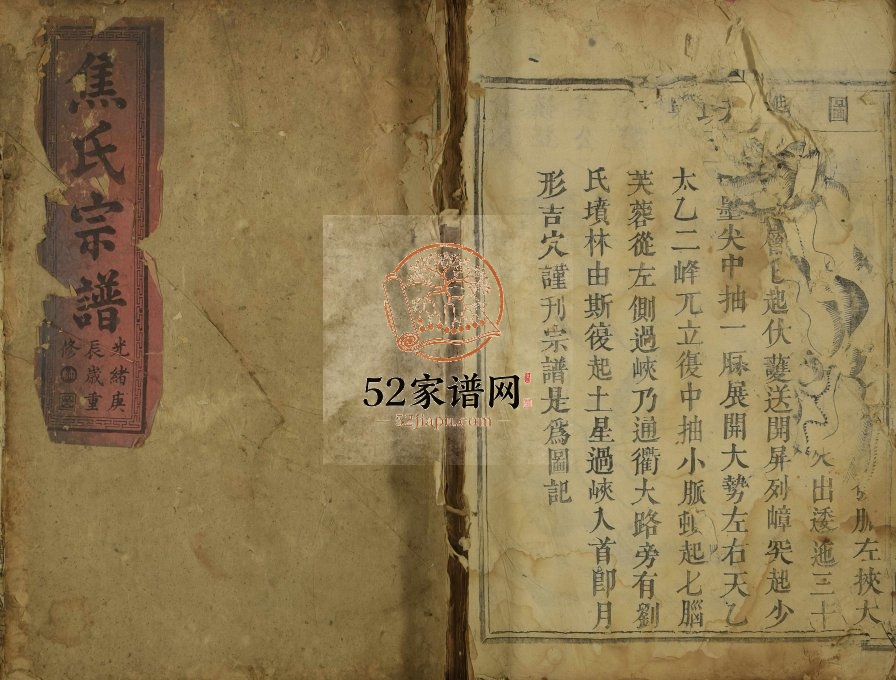 焦氏宗譜
光緒庚
辰歲重
修
圖
脈左挾大
出逶迤三十
起伏護送開屏列嶂突起少
星尖中抽一脈展開大勢左右天乙
太乙二峰兀立復中抽小脈頓起七腦
芙蓉從左側過峽乃通衢大路旁有劉
氏墳林由斯復起土星過峽入首卽月
形吉穴謹刊宗譜是爲圖記
52家谱网
52jiapu.com